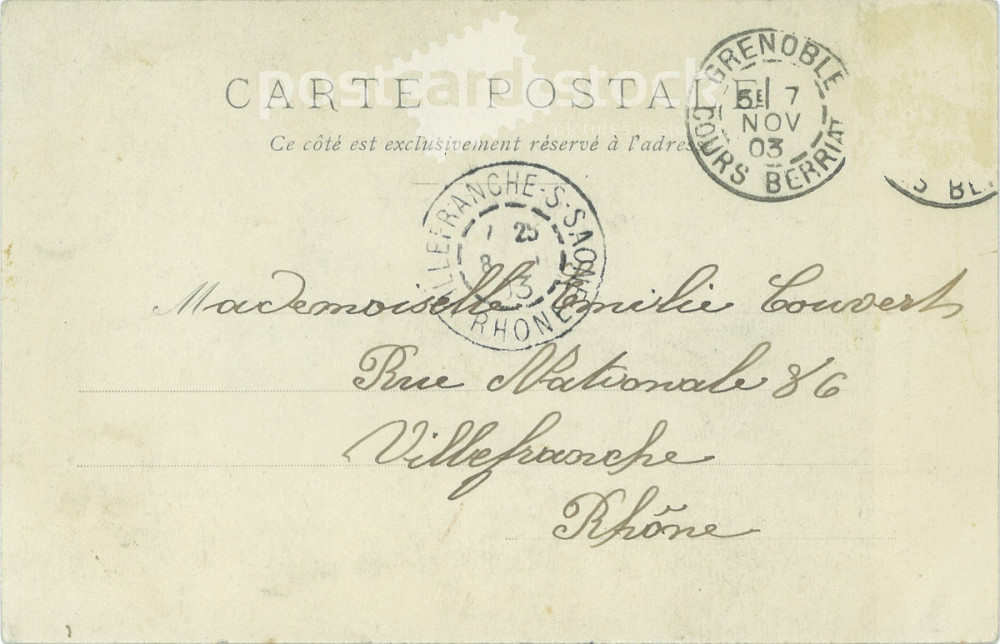 CARTE POSTALE
postcard stock
Ce côté est exclusivement réservé à l'adresse
GRENOBLE
5E 7
NOV
03
COURS BERRIAT
S BE
VILLEFRANCHE-S-SAONE
1 25
8
03
RHONE
Mademoiselle Emilie Couvert
Rue Nationale 86
Villefranche
Rhône